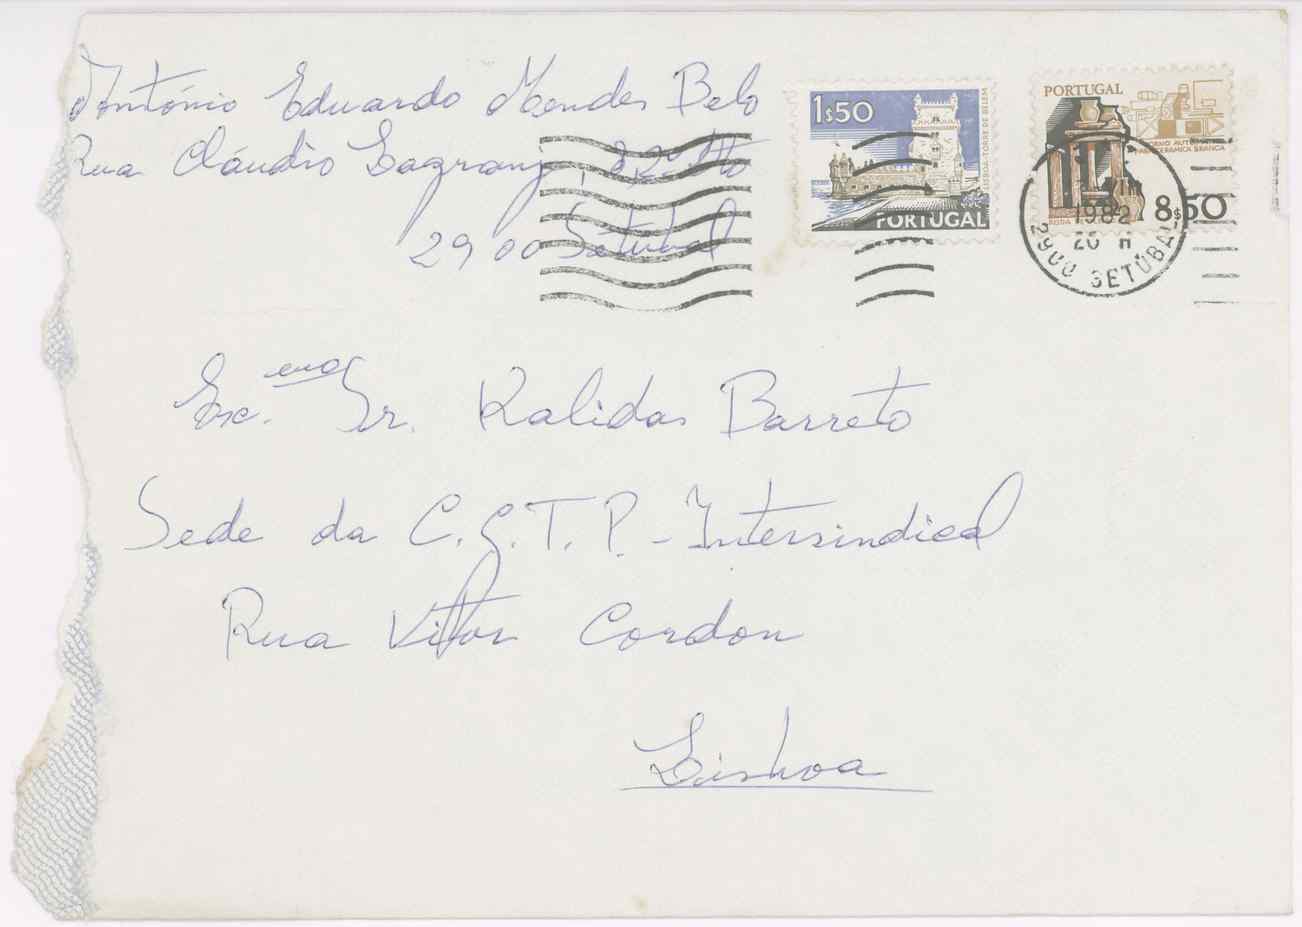 António Eduardo Mendes Belo
Rua Cláudio Lagrange, 8
2900 Setúbal
1$50
LISBOA-TORRE DE BELÉM
PORTUGAL
PORTUGAL
8$50
1982
20 H
2900 SETÚBAL
Exc.mo Sr. Kalidas Barreto
Sede da C.G.T.P. - Intersindical
Rua Vítor Cordon
Lisboa